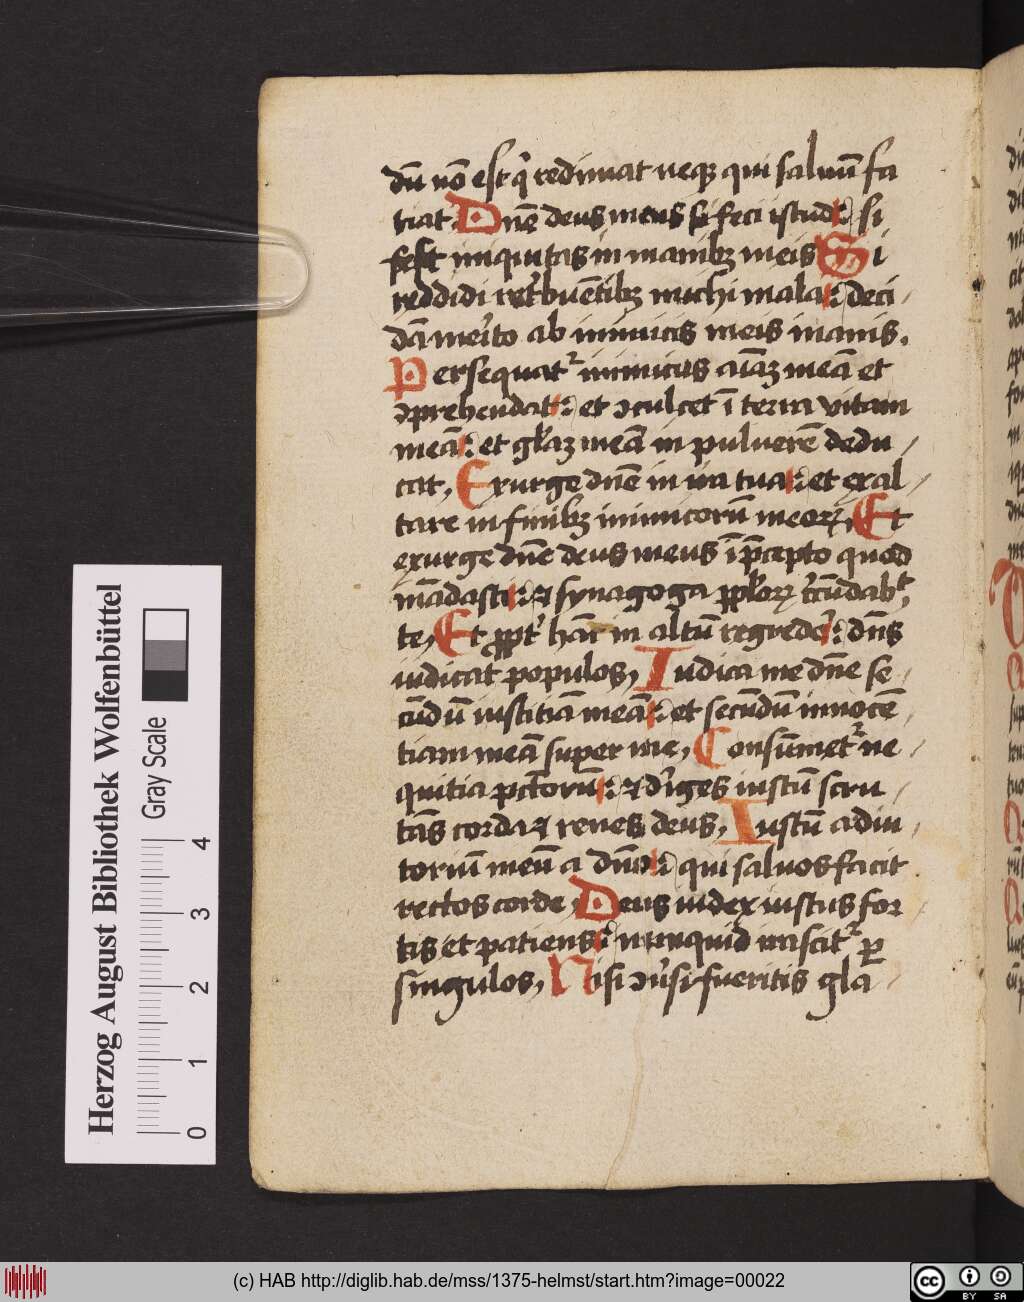 dū nō est q̇ redimat neqꝫ qui saluū fa
tiat Dn̄e deus meus si feci istud : si
si est iniquitas in manibꝫ meis Si
reddidi ret'buētibꝫ michi mala : deci
dā me'ito ab inimicis meis inanis.
Persequat᷑ inimicus aīaꝫ meā et
ↄprehendat : et ↄculcet ī terra vitam
meā : et gl'iaꝫ meā in puluerē dedu
cat, Exurge dn̄e in ira tua : et exal
tare in finibꝫ inimicorū meoꝝ, Et
exurge dn̄e deus meus ī p̄cepto quod
mādasti : ⁊ synagoga ppl'oꝝ c̄cūdabt
te, Et ꝓpt' hāc in altū regrede' : dn̄s
iudicat populos, Iudica me dn̄e se
cūdū iustitiā meā : et secūdū innocē
tiam meā super me, Consūmet᷑ ne
quitia pctōrū : ⁊ d'iges iustū scru
tās corda ⁊ renes deus, Iustū adiu
toriū meū a dn̄o : qui saluos facit
rectos corde, Deus iudex iustus for
tis et patiens : nunquid irascit᷑ ꝑ
singulos, Nisi ↄu'si fueritis gla
Herzog August Bibliothek Wolfenbüttel
Gray Scale
0 1 2 3 4
(c) HAB http://diglib.hab.de/mss/1375-helmst/start.htm?image=00022
cc BY SA